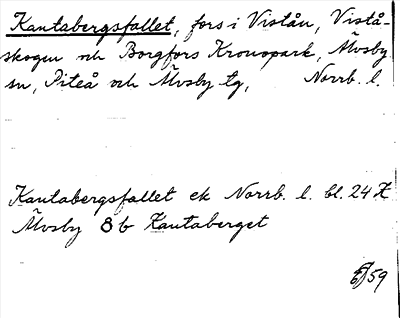 Kantabergsfallet, fors i Vistån, Vistå-
skogen och Borgfors Kronopark, Älvsby
sn, Piteå och Älvsby tg, Norrb. l.
Kantabergsfallet ek Norrb. l. bl. 24 Z
Älvsby 8b Kantaberget
59